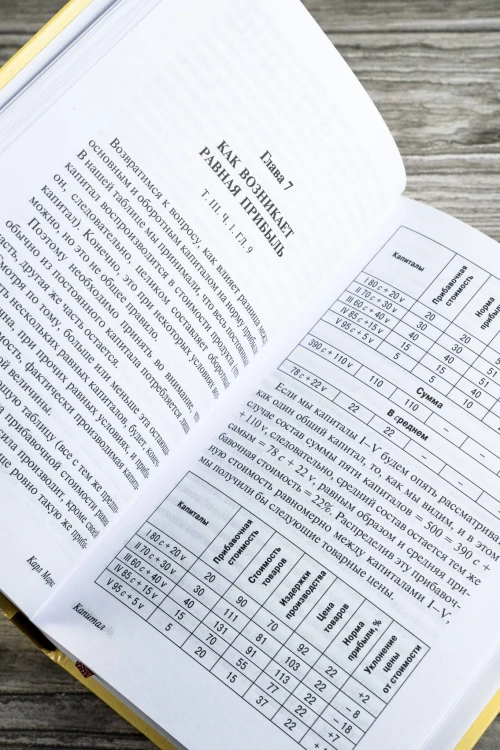 Глава 7
КАК ВОЗНИКАЕТ
РАВНАЯ ПРИБЫЛЬ
Т. III. Ч. 1. ГЛ. 9
Возвратимся к вопросу, как влияет разница между
основным и оборотным капиталом на норму прибыли.
В нашей таблице мы принимали, что весь постоянный
капитал воспроизводится в стоимости продукта (что
он, следовательно, целиком составляет оборотный
капитал). Конечно, это при некоторых условиях воз-
можно, но это не общее правило.
Поэтому необходимо принять во внимание, что
обычно из постоянного капитала потребляется лишь
часть, другая же часть остается.
смотря по тому, больше или меньше эта
нескольких равных капиталов, будет
при прочих равных условиях, и
фактически производимая
величины.
таблицу (все с тем же
прибавочной стоимости
производит, кроме своей
ровно такую же
Карл Маркс
Капиталы
Прибавочная
стоимость
Норма
I 80 c + 20 v
20
II 70 c + 30 v
30
III 60 c + 40 v
40
IV 85 c + 15 v
15
V 95 c + 5 v
5
390 c + 110 v
110
110
Сумма
78 c + 22 v
22
22
В среднем
Если мы капиталы I–V будем опять рассматривать
как один общий капитал, то, как мы видим, и в этом
случае состав суммы пяти капиталов = 500 = 390 c +
+ 110 v, следовательно, средний состав остается тем же
самым = 78 c + 22 v, равным образом и средняя при-
бавочная стоимость = 22%. Распределив эту прибавоч-
ную стоимость равномерно между капиталами I–V,
мы получили бы следующие товарные цены.
Капиталы
Прибавочная
стоимость
Стоимость
товаров
Издержки
производства
Цена
товаров
Норма
прибыли, %
Уклонение
цены
от стоимости
I 80 c + 20 v
20
90
70
92
22
+2
II 70 c + 30 v
30
111
81
103
22
– 8
III 60 c + 40 v
40
131
91
113
22
– 18
IV 85 c + 15 v
15
70
55
77
22
V 95 c + 5 v
5
20
15
37
22
Капитал